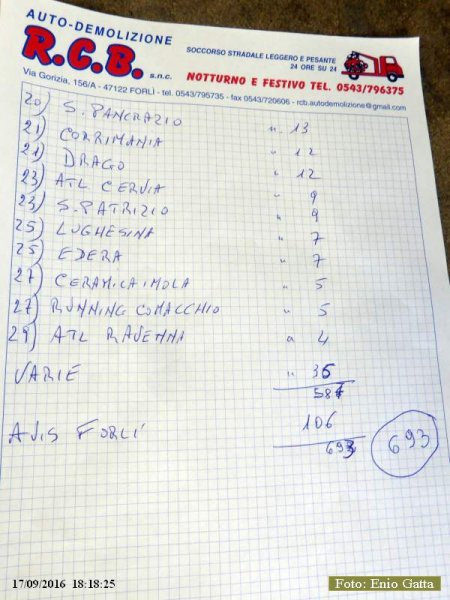 AUTO-DEMOLIZIONE
R.C.B. s.n.c.
SOCCORSO STRADALE LEGGERO E PESANTE
24 ORE SU 24
NOTTURNO E FESTIVO TEL. 0543/796375
Via Gorizia, 156/A - 47122 FORLÌ - tel. 0543/795735 - fax 0543/720606 - rcb.autodemolizione@gmail.com
20) S. PANCRAZIO n. 13
21) CORRIMANIA " 12
21) DRAGO " 12
23) ATL CERVIA " 9
23) S. PATRIZIO " 9
25) LUGHESINA " 7
25) EDERA " 7
27) CERAMICA IMOLA " 5
27) RUNNING COMACCHIO " 5
29) ATL RAVENNA " 4
VARIE " 35
587
AVIS FORLÌ 106
693 693
17/09/2016 18:18:25
Foto: Enio Gatta